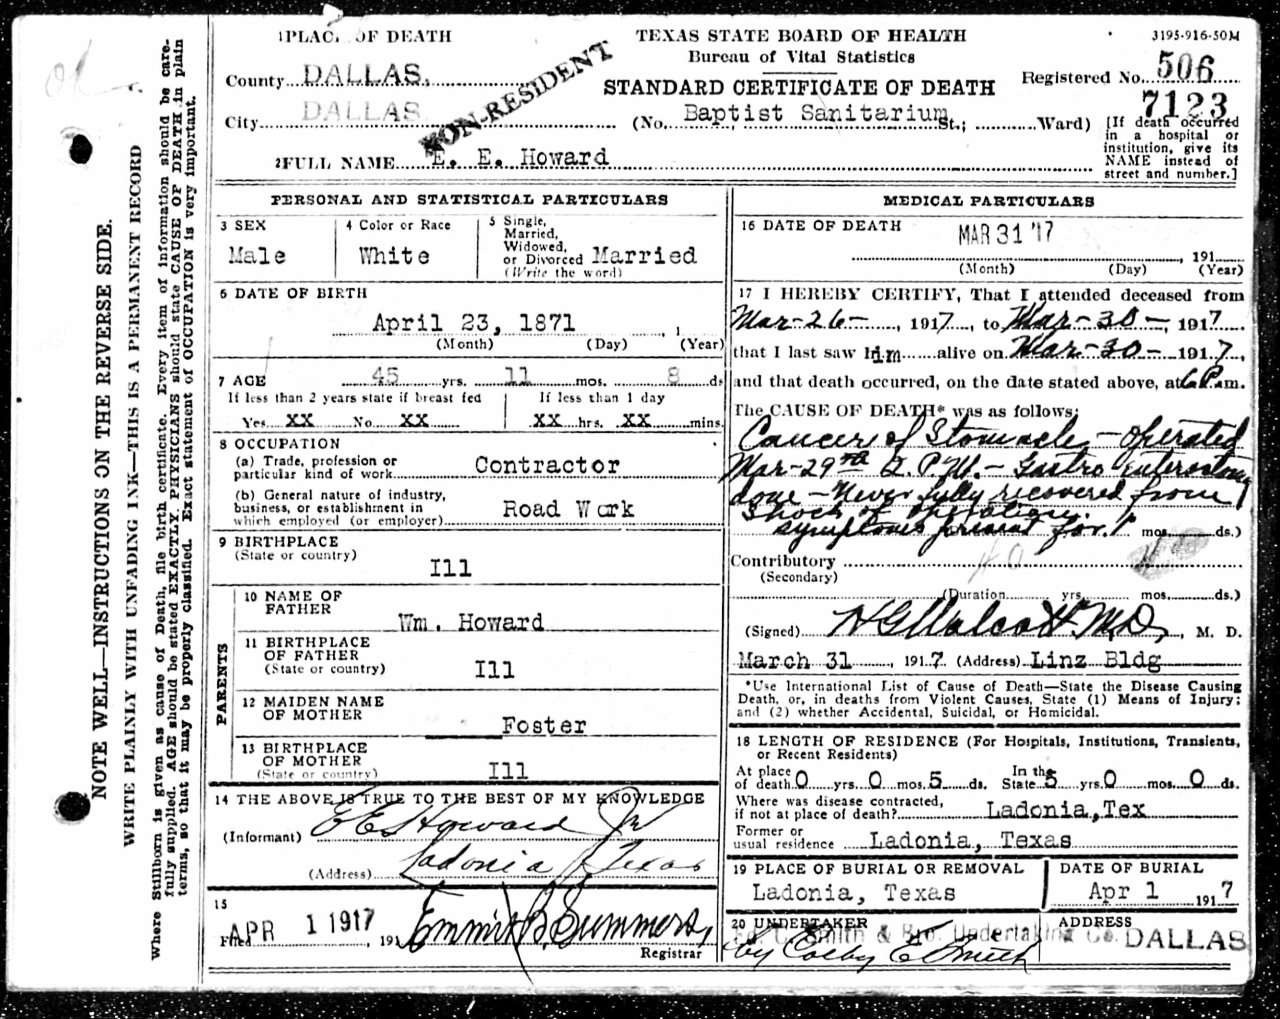 TEXAS STATE BOARD OF HEALTH
Bureau of Vital Statistics
STANDARD CERTIFICATE OF DEATH
3195-916-50M
1 PLACE OF DEATH
County DALLAS.
City DALLAS
NON-RESIDENT
(No. Baptist Sanitarium St.; Ward)
Registered No. 506
7123
[If death occurred
in a hospital or
institution, give its
NAME instead of
street and number.]
2 FULL NAME E. E. Howard
PERSONAL AND STATISTICAL PARTICULARS
3 SEX
Male
4 Color or Race
White
5 Single,
Married,
Widowed,
or Divorced Married
(Write the word)
6 DATE OF BIRTH
April 23, 1871
(Month) (Day) (Year)
7 AGE 45 yrs. 11 mos. 8 ds
If less than 2 years state if breast fed
Yes XX No XX
If less than 1 day
XX hrs. XX mins.
8 OCCUPATION
(a) Trade, profession or
particular kind of work Contractor
(b) General nature of industry,
business, or establishment in
which employed (or employer) Road Work
9 BIRTHPLACE
(State or country)
Ill
PARENTS
10 NAME OF
FATHER
Wm. Howard
11 BIRTHPLACE
OF FATHER
(State or country) Ill
12 MAIDEN NAME
OF MOTHER
Foster
13 BIRTHPLACE
OF MOTHER
(State or country) Ill
14 THE ABOVE IS TRUE TO THE BEST OF MY KNOWLEDGE
(Informant) E E Howard Jr
(Address) Ladonia Texas
15
Filed APR 1 1917 191
Emmit B. Summers,
Registrar
MEDICAL PARTICULARS
16 DATE OF DEATH
MAR 31 '17
, 191
(Month) (Day) (Year)
17 I HEREBY CERTIFY, That I attended deceased from
Mar-26-, 1917, to Mar-30-, 1917.
that I last saw him alive on Mar-30- 1917,
and that death occurred, on the date stated above, at 6 P.m.
The CAUSE OF DEATH* was as follows:
Cancer of Stomach - operated
Mar-29 P.M.- Gastro Enterostomy
done - Never fully recovered from
Shock of operation.
Symptoms present for 1 mos. ds.)
Contributory
(Secondary)
(Duration yrs. mos. ds.)
(Signed) M.D., M. D.
March 31, 1917 (Address) Linz Bldg
*Use International List of Cause of Death—State the Disease Causing
Death, or, in deaths from Violent Causes, State (1) Means of Injury;
and (2) whether Accidental, Suicidal, or Homicidal.
18 LENGTH OF RESIDENCE (For Hospitals, Institutions, Transients,
or Recent Residents)
At place
of death 0 yrs. 0 mos. 5 ds.
In the
State 5 yrs. 0 mos. 0 ds.
Where was disease contracted,
if not at place of death? Ladonia,Tex
Former or
usual residence Ladonia, Texas
19 PLACE OF BURIAL OR REMOVAL
Ladonia, Texas
DATE OF BURIAL
Apr 1 1917
20 UNDERTAKER
Ed. C. Smith & Bro. Undertaking Co.
by Colby E Smith
ADDRESS
DALLAS
NOTE WELL—INSTRUCTIONS ON THE REVERSE SIDE.
WRITE PLAINLY WITH UNFADING INK—THIS IS A PERMANENT RECORD
Where Stillborn is given as cause of Death, file birth certificate. Every item of information should be care-
fully supplied. AGE should be stated EXACTLY. PHYSICIANS should state CAUSE OF DEATH in plain
terms, so that it may be properly classified. Exact statement of OCCUPATION is very important.